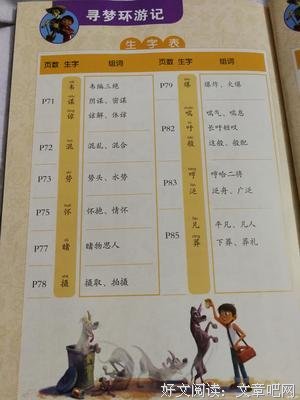 寻梦环游记
生字表
页数 生字 组词
P71
韦 韦编三绝
谋 阴谋、密谋
谅 谅解、体谅
P72 混 混乱、混合
P73 势 势头、水势
P75 怀 怀抱、情怀
P77 睹 睹物思人
P78 摄 摄取、拍摄
页数 生字 组词
P79 爆 爆炸、火爆
P82
喘 喘气、喘息
吁 长吁短叹
般 这般、般配
P83
哼 哼哈二将
泛 泛舟、广泛
P85
凡 平凡、凡人
葬 下葬、葬礼
好文阅读：文章吧网